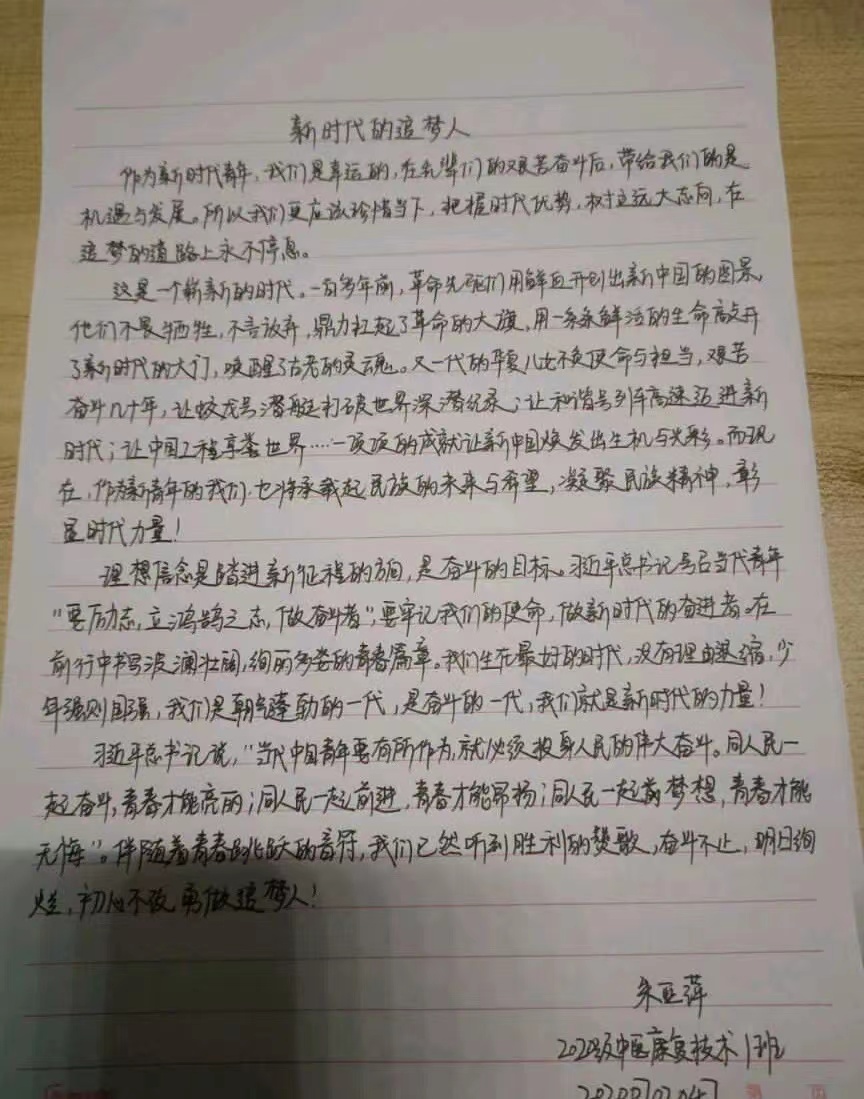 新时代的追梦人
作为新时代青年，我们是幸运的，在先辈们的艰苦奋斗后，带给我们的是
机遇与发展。所以我们更应该珍惜当下，把握时代优势，树立远大志向，在
追梦的道路上永不停息。
这是一个崭新的时代。一百多年前，革命先驱们用鲜血开创出新中国的图景，
他们不畏牺牲，不言放弃，鼎力扛起了革命的大旗，用一条条鲜活的生命敲开
了新时代的大门，唤醒了古老的灵魂。又一代的华夏儿女不负使命与担当，艰苦
奋斗几十年，让蛟龙号潜艇打破世界深潜纪录；让和谐号列车高速迈进新
时代；让中国工程享誉世界……一项项的成就让新中国焕发出生机与光彩。而现
在，作为新青年的我们，也将承载起民族的未来与希望，凝聚民族精神，彰
显时代力量！
理想信念是踏进新征程的方向，是奋斗的目标。习近平总书记号召当代青年
“要励志，立鸿鹄之志，做奋斗者”，要牢记我们的使命，做新时代的奋进者。在
前行中书写波澜壮阔，绚丽多姿的青春篇章。我们生在最好的时代，没有理由退缩，少
年强则国强，我们是朝气蓬勃的一代，是奋斗的一代，我们就是新时代的力量！
习近平总书记说，“当代中国青年要有所作为，就必须投身人民的伟大奋斗。同人民一
起奋斗，青春才能亮丽；同人民一起前进，青春才能昂扬；同人民一起梦想，青春才能
无悔”。伴随着青春跳跃的音符，我们已然听到胜利的赞歌，奋斗不止，明日绚
烂，初心不改，勇做追梦人！
朱亚萍
2020级中医康复技术1班